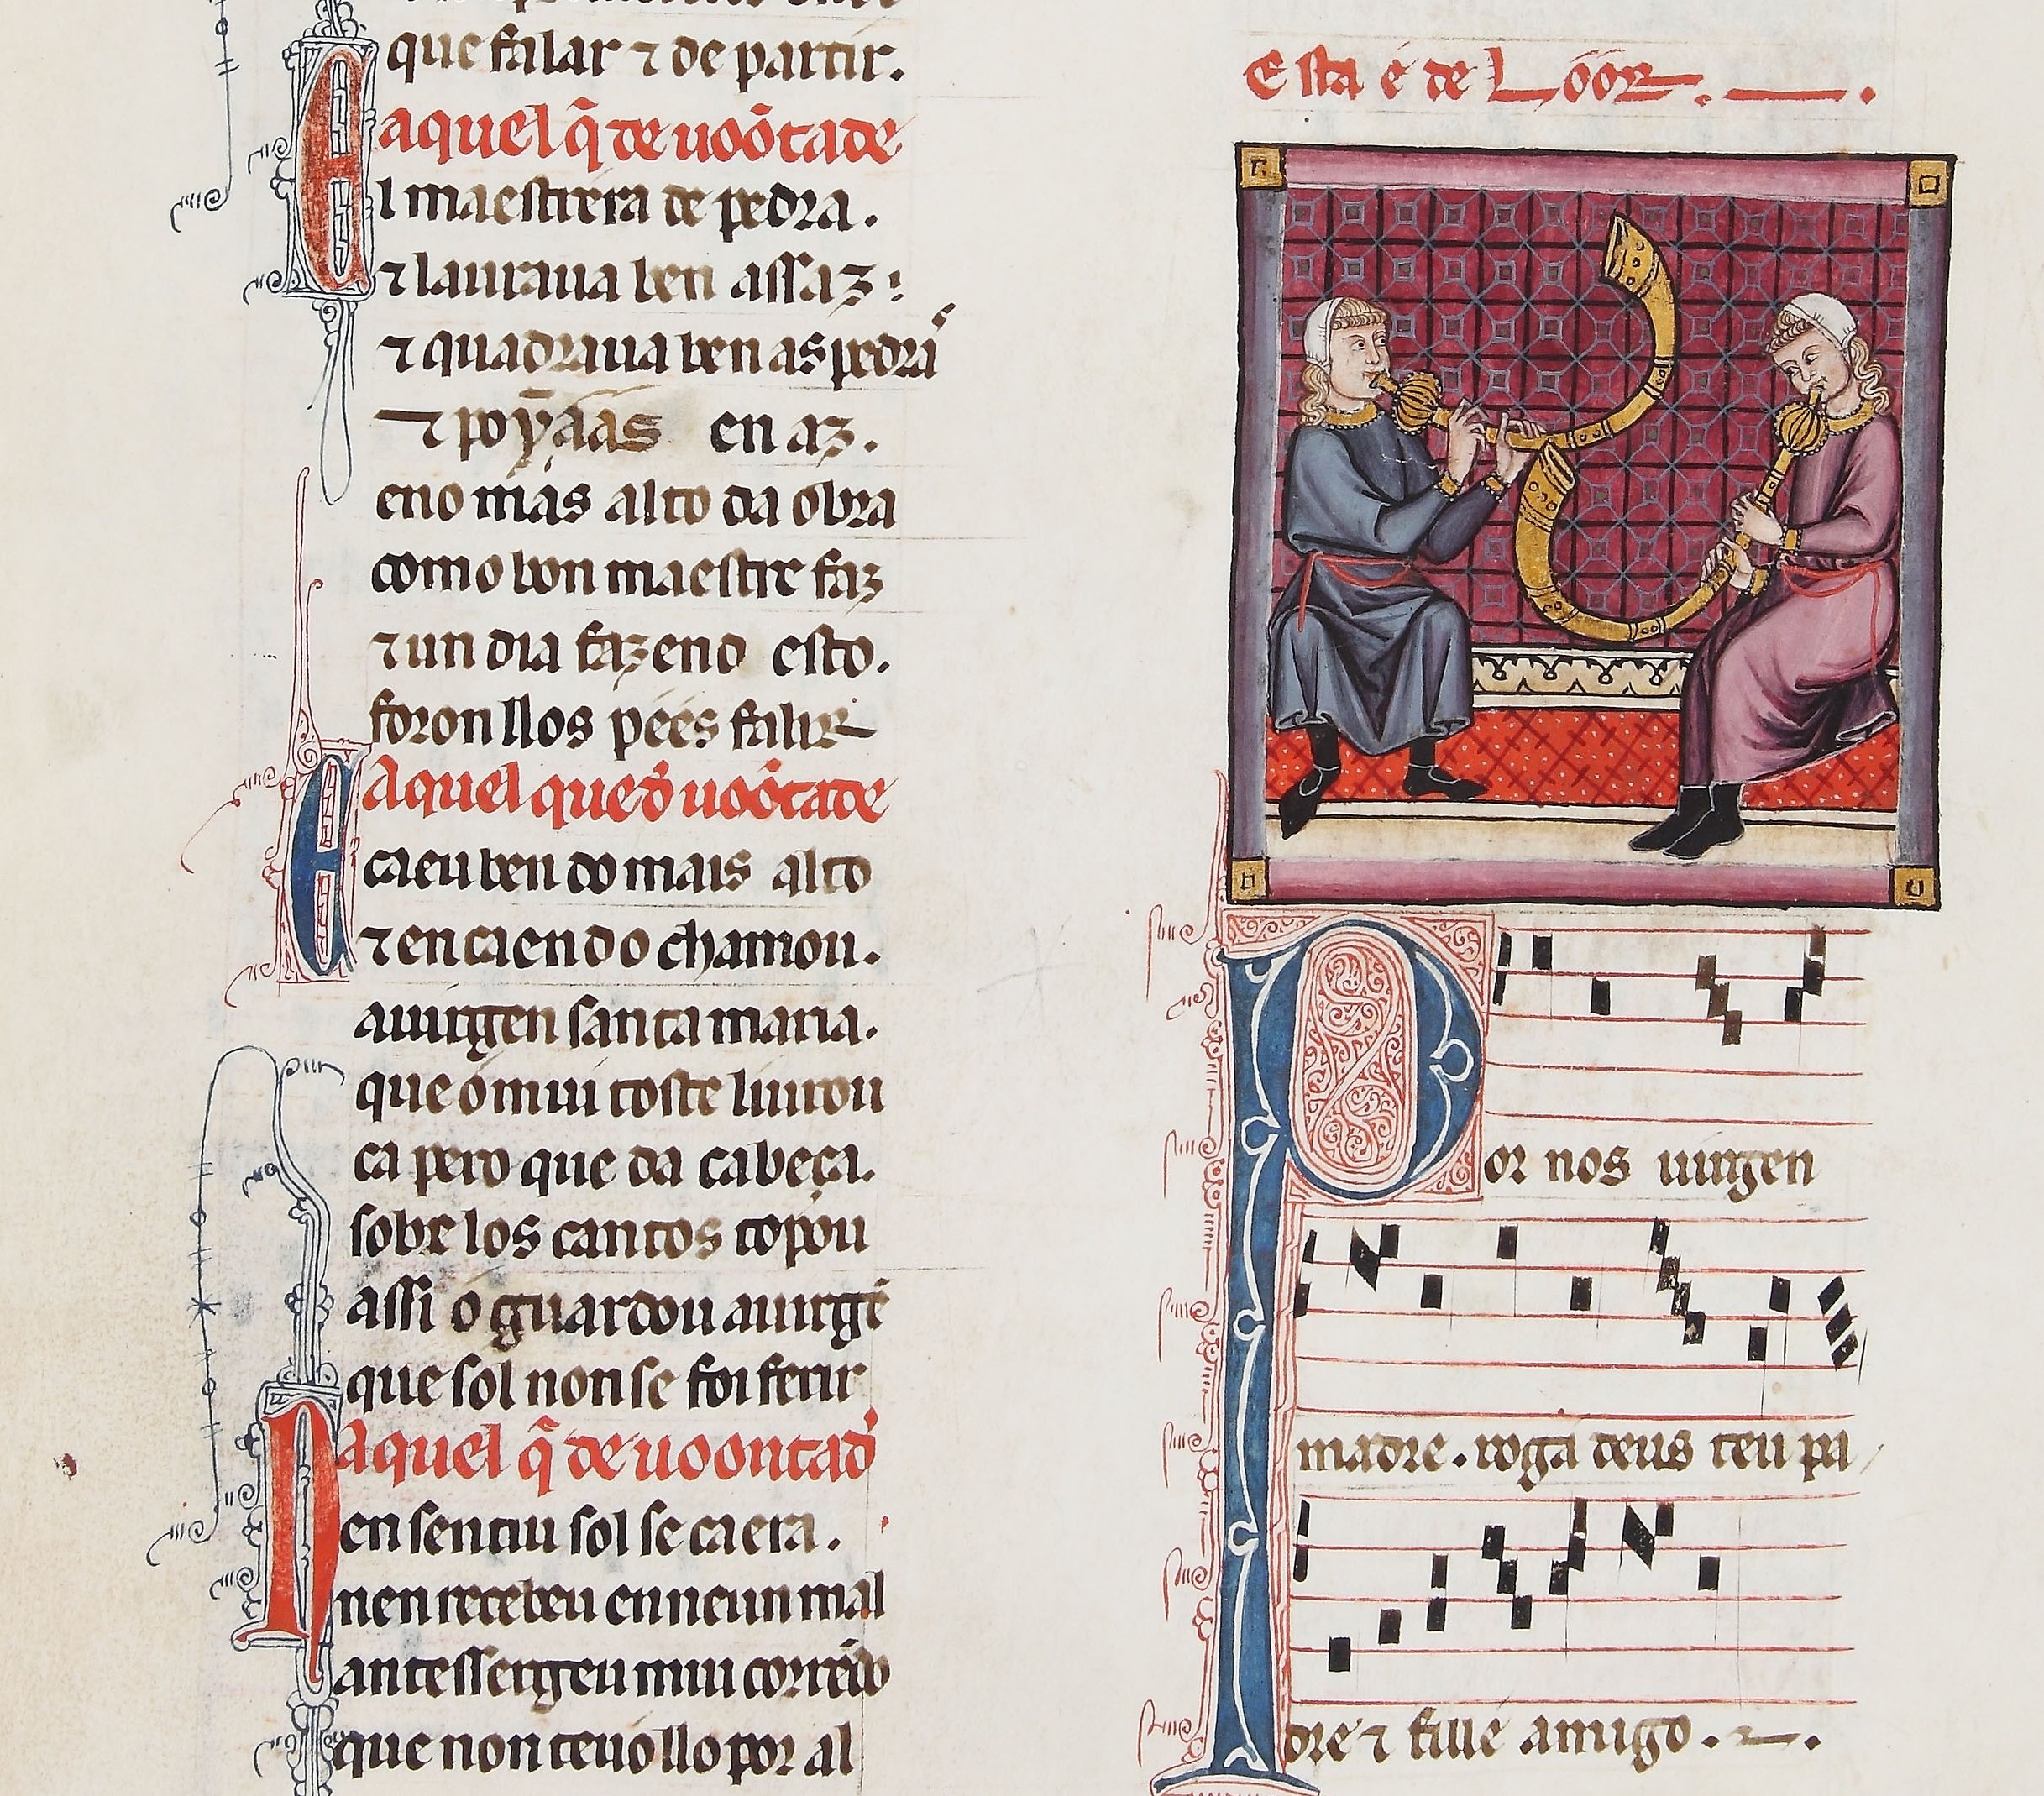 que falar ⁊ de partir.
Aaquel q̃ de uoõtade
El maestr era de pedra.
⁊ lauraua ben assaz:
⁊ quadraua ben as pedras
⁊ poỹaas en az.
eno mais alto da obra
como bon maestre faz
⁊ un dia fazend esto.
foronllos pées falir
Aaquel que d' uoõtade
E caeu ben do mais alto
⁊ en caendo chamou.
a uirgen santa maria.
que o mui toste liurou
ca pero que da cabeça.
sobre los cantos topou
assi o guardou a uirgẽ
que sol non se foi ferir
aquel q̃ de uoontad'
Nen sentiu sol se caera.
nen recebeu en neun mal
ante ss ergeu mui correndo
que non teuo llo por al
Esta é de Loor.
Por nos uirgen
madre. roga deus teu pa
dre ⁊ fille amigo.